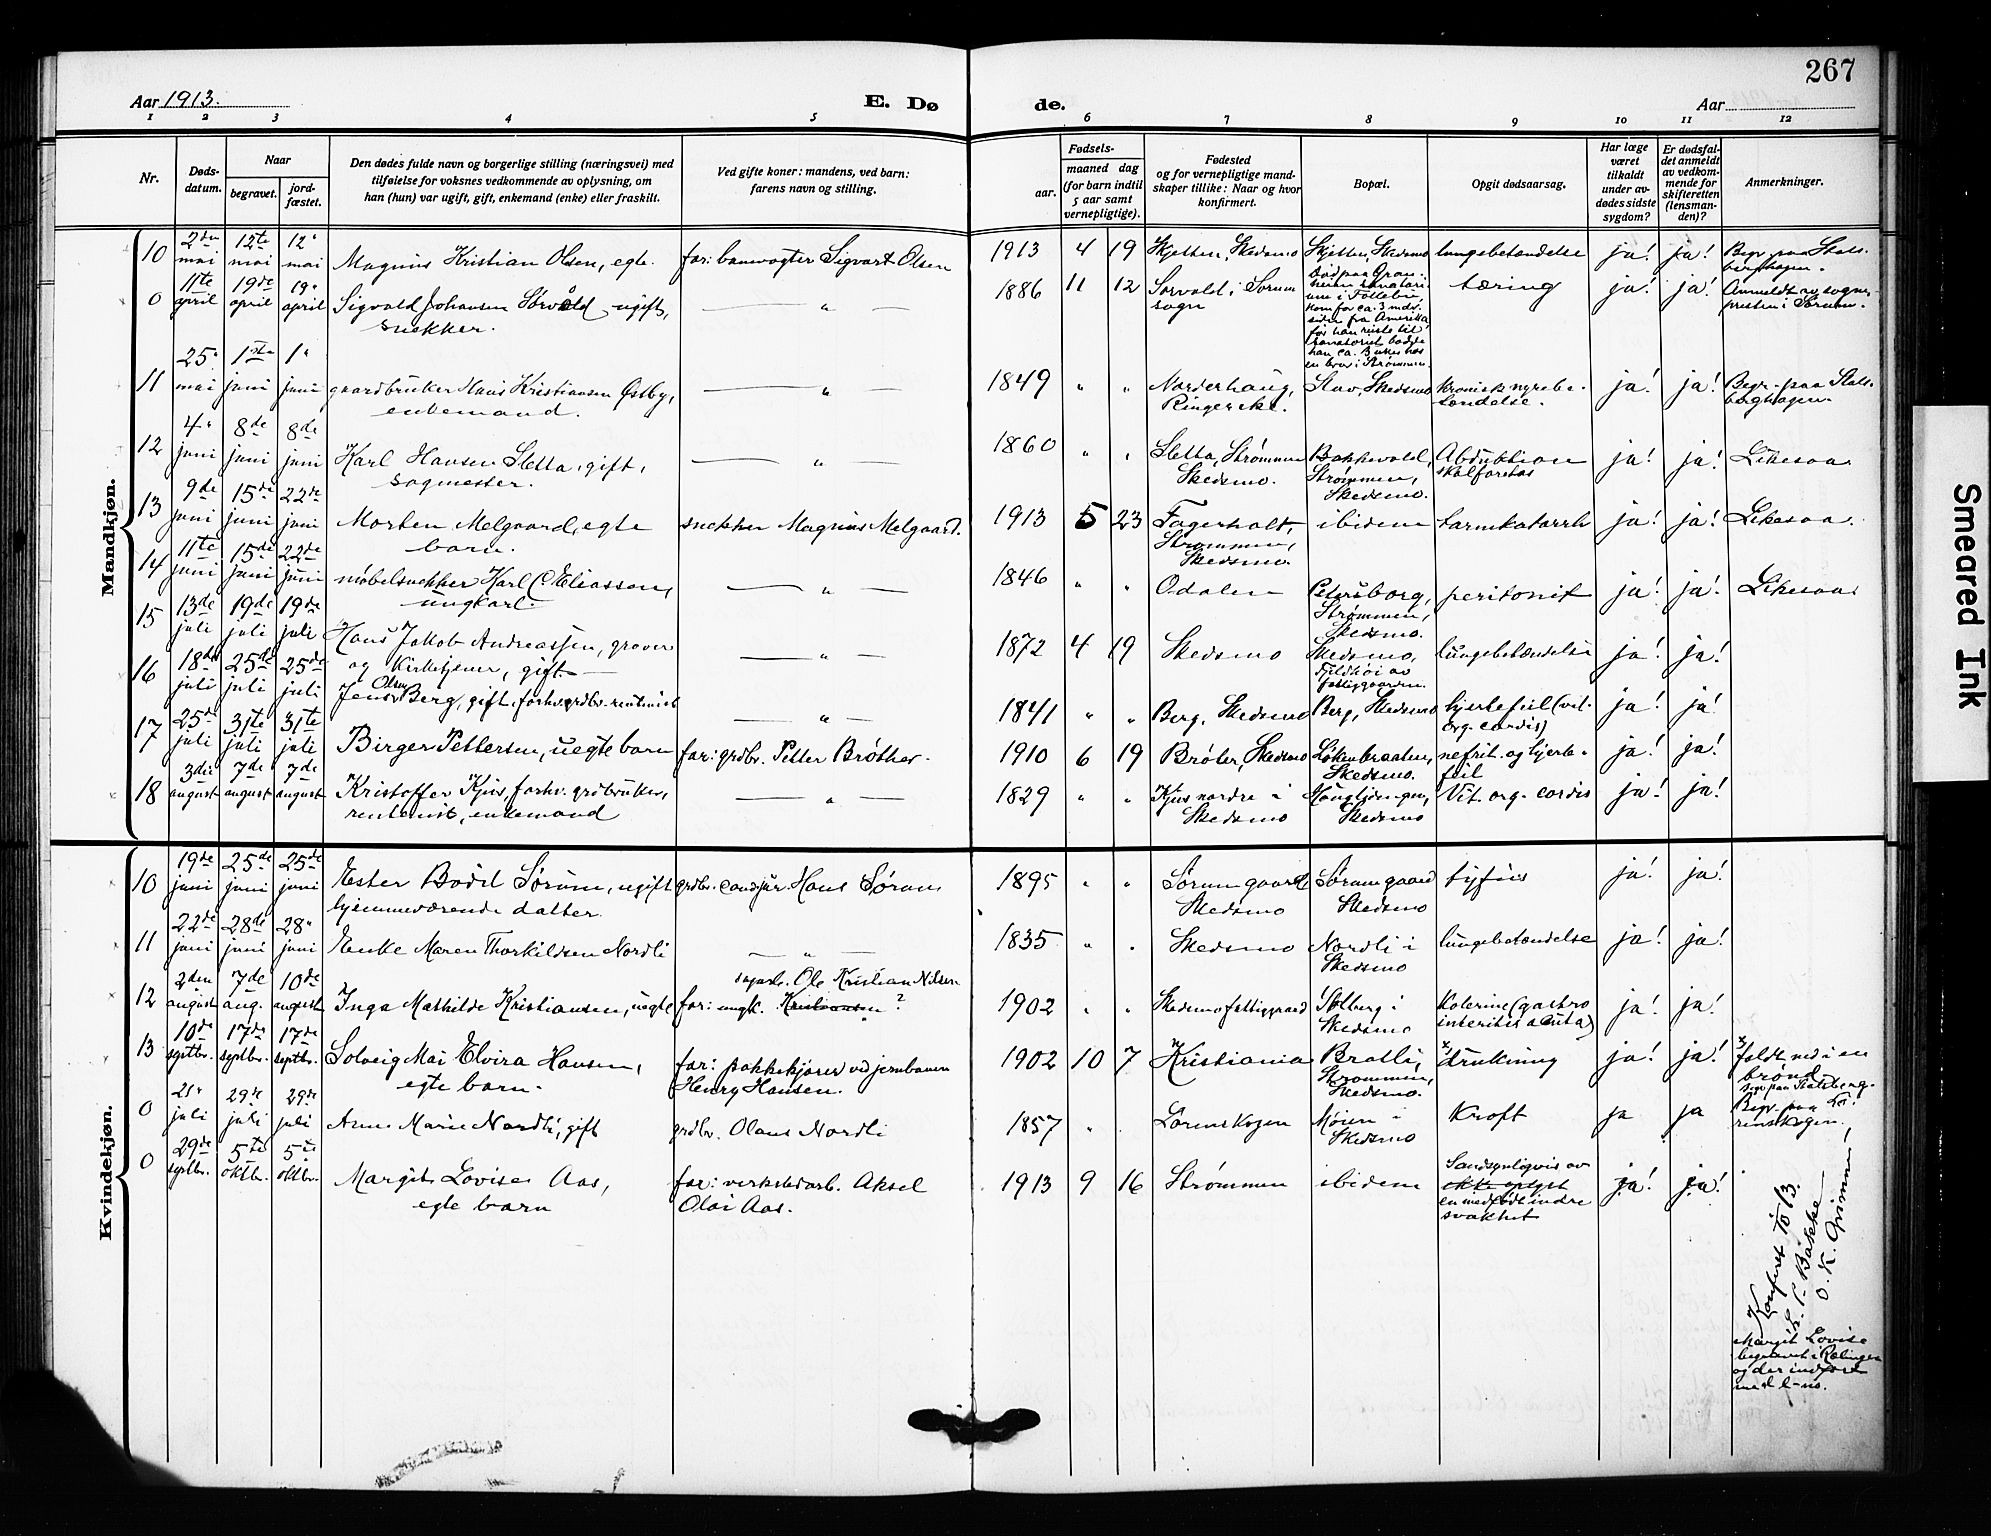 267
Aar 1913.
E. Dø
de.
Aar
1 2 3 4 5 6 7 8 9 10 11 12
Nr.
Døds-
datum.
Naar
begravet.
jord-
fæstet.
Den dødes fulde navn og borgerlige stilling (næringsvei) med
tilføielse for voksnes vedkommende av oplysning, om
han (hun) var ugift, gift, enkemand (enke) eller fraskilt.
Ved gifte koner: mandens, ved barn:
farens navn og stilling.
Fødsels-
aar.
maaned dag
(for barn indtil
5 aar samt
vernepligtige).
Fødested
og for vernepligtige mand-
skaper tillike: Naar og hvor
konfirmert.
Bopæl.
Opgit dødsaarsag.
Har læge
været
tilkaldt
under av-
dødes sidste
sygdom?
Er dødsfal-
det anmeldt
av vedkom-
mende for
skifteretten
(lensman-
den)?
Anmerkninger.
Mandkjøn.
10 2den mai 12te mai 12" mai Magnus Kristian Olsen, egte. far: banevogter Sigvart Olsen 1913 4 19 Skjetten, Skedsmo Skjetten, Skedsmo lungebetændelse ja! ja! Begr. paa Stals-
berghagen.
0 11te april 19de april 19" april Sigvald Johansen Sørvald ugift,
snekker. — " — 1886 11 12 Sørvald i Sørum
sogn
Død paa Gran-
heim sanatori-
um i Follebu,
kom for ca. 3 mdr.
siden fra Amerika
før han reiste til
sanatoriet bodde
han ca. 3 uker hos
en bror i Strømmen.
tæring ja! ja! Anmeldt av sogne-
presten i Sørum.
11 25" mai 1ste juni 1" juni gaardbruker Hans Kristiansen Østby,
enkemand. — " — 1849 " " Norderhaug,
Ringerike. Stav, Skedsmo kronisk nyrebe-
tændelse. ja! ja! Begr. paa Stals-
berghagen.
12 4" juni 8de juni 8de juni Karl Hansen Sletta, gift,
sagmester. — " — 1860 " " Sletta, Strømmen
Skedsmo. Bakkevold,
Strømmen,
Skedsmo. ja! ja! Likesaa
13 9de juni 15de juni 22de juni Morten Melgaard, egte
barn. snekker Magnus Melgaard. 1913 5 23 Fagerholt,
Strømmen,
Skedsmo. ibidem tarmkatarrh ja! ja! Likesaa.
14 11te juni 15de juni 22de juni møbelsnekker Karl C. Eliassen,
ungkarl. — " — 1846 " " Odalen Petersborg,
Strømmen,
Skedsmo. peritonit ja! ja! Likesaa.
15 13de juli 19de juli 19de juli Hans Jakob Andreassen, graver
og kirketjener, gift. — " — 1872 4 19 Skedsmo Skedsmo,
fattiggaarden. lungebetændelse ja! ja!
16 18de juli 25de juli 25de juli Jens Olsen Berg, gift, forhv. grdbr. rentenist — " — 1841 " " Berg, Skedsmo Berg, Skedsmo hjertefeil (vit.
org. cordis) ja! ja!
17 25de juli 31te juli 31te juli Birger Pettersen, uegte barn far: grdbr. Petter Brøther. 1910 6 19 Brøter, Skedsmo Løkenbraaten,
Skedsmo. nefrit. og hjerte-
feil ja! ja!
18 3die august 7de august 7de august Kristoffer Kjus, forhv. grdbruker,
rentenist, enkemand — " — 1829 " " Kjus nordre i
Skedsmo
Skedsmo Vit. org. cordis ja! ja!
Kvindekjøn.
10 19de juni 25de juni 25de juni Ester Bodil Sørum, ugift
hjemmeværende datter. grdbr. cand.jur. Hans Sørum 1895 " " Sørum gaard
Skedsmo Sørum gaard
Skedsmo tyfus ja! ja!
11 22de juni 28de juni 28" juni Enke Maren Thorkildsen Nordli — " — 1835 " " Skedsmo Nordli i
Skedsmo lungebetændelse ja! ja!
12 2den august 7de aug. 10de august Inga Mathilde Kristiansen, uegte Ole Kristian Nilsen
far: ungk. Kristiansen ? 1902 " " Skedsmo fattiggaard Solberg i
Skedsmo Kolerine (gastro
interitis acuta) ja! ja!
13 10de septbr. 17de septbr. 17de septbr. Solveig Mai Elvira Hansen,
egte barn. far: pakkekjører ved jernbanen
Henry Hansen. 1902 10 7 Kristiania Bratli,
Strømmen,
Skedsmo. x) drukning ja! ja! x) faldt ned i en
brønd.
Begr. paa Stalsberg-
0 21" juli 29de juli 29de juli Anne Marie Nordli, gift grdbr. Olaus Nordli 1857 " Lørenskogen Moien i
Skedsmo Kræft ja ja Begr. paa Lø-
renskogen.
0 29de septbr. 5te oktbr. 5te oktbr. Margit Lovise Aas,
egte barn far: verkstedarb. Aksel
Olai Aas. 1913 9 16 Strømmen ibidem Sandsynligvis av
ikke oplyst
en medfødt indre
svakhet ja! ja!
Konferert 1/10 13.
Bakke
O. K. Grimm
Margit Lovise
begravet i Rælingen
og der indført
med l-no.
Smeared Ink